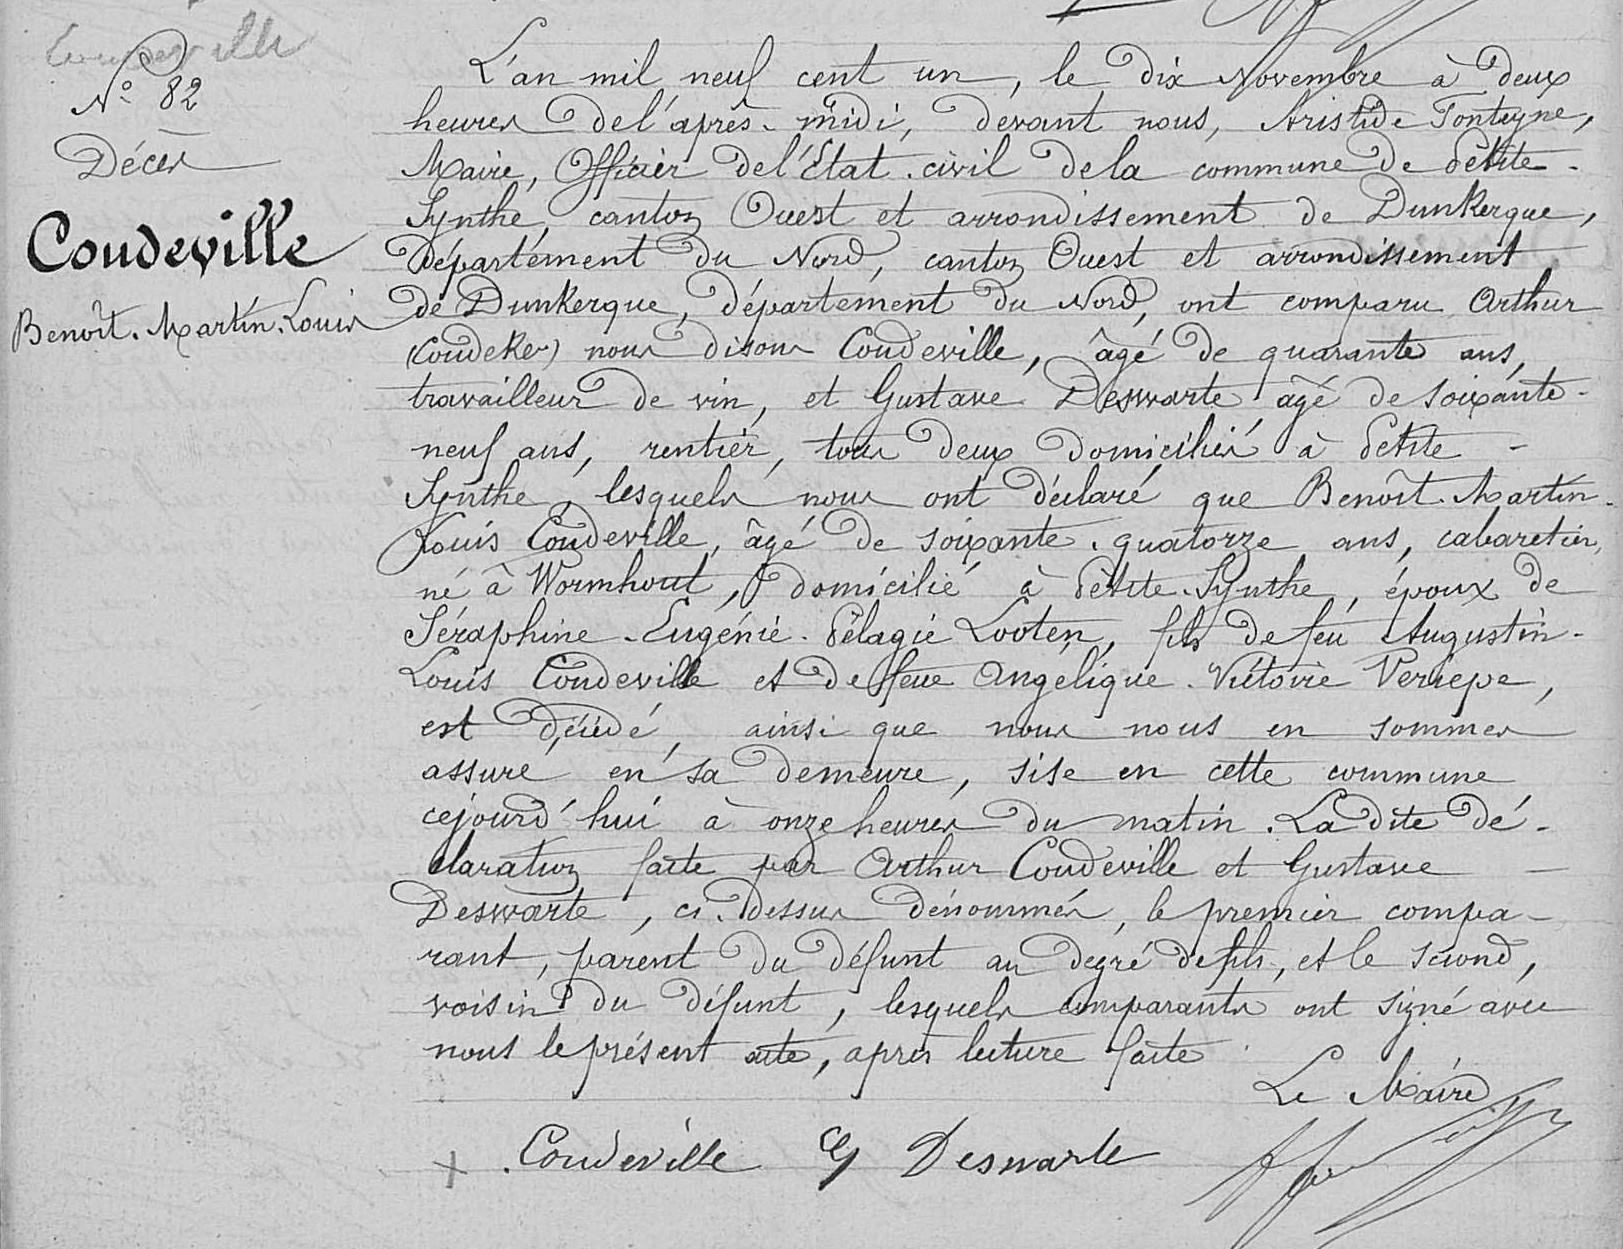 Coudeville
N° 82
Décès
Coudeville
Benoît-Martin-Louis
L'an mil neuf cent un, le dix Novembre à deux
heures de l'après-midi, devant nous, Aristide Fonteyne,
Maire, Officier de l'État-civil de la commune de Petite-
Synthe, canton Ouest et arrondissement de Dunkerque,
Département du Nord, canton Ouest et arrondissement
de Dunkerque, département du Nord, ont comparu Arthur
(Coudeker) nous disons Coudeville, âgé de quarante ans,
travailleur de vin, et Gustave Deswarte âgé de soixante-
neuf ans, rentier, tous deux domiciliés à Petite-
Synthe, lesquels nous ont déclaré que Benoît-Martin-
Louis Coudeville, âgé de soixante-quatorze ans, cabaretier,
né à Wormhout, domicilié à Petite-Synthe, époux de
Séraphine-Eugénie-Pélagie Looten, fils de feu Augustin-
Louis Coudeville et de feue Angélique-Victoire Veriepe,
est décédé, ainsi que nous nous en sommes
assuré en sa demeure, sise en cette commune
cejourd'hui à onze heures du matin. La dite dé-
claration faite par Arthur Coudeville et Gustave
Deswarte, ci-dessus dénommés, le premier compa-
rant, parent du défunt au degré de fils, et le second,
voisin du défunt, lesquels comparants ont signé avec
nous le présent acte, après lecture faite
Le Maire
Coudeville G Deswarte